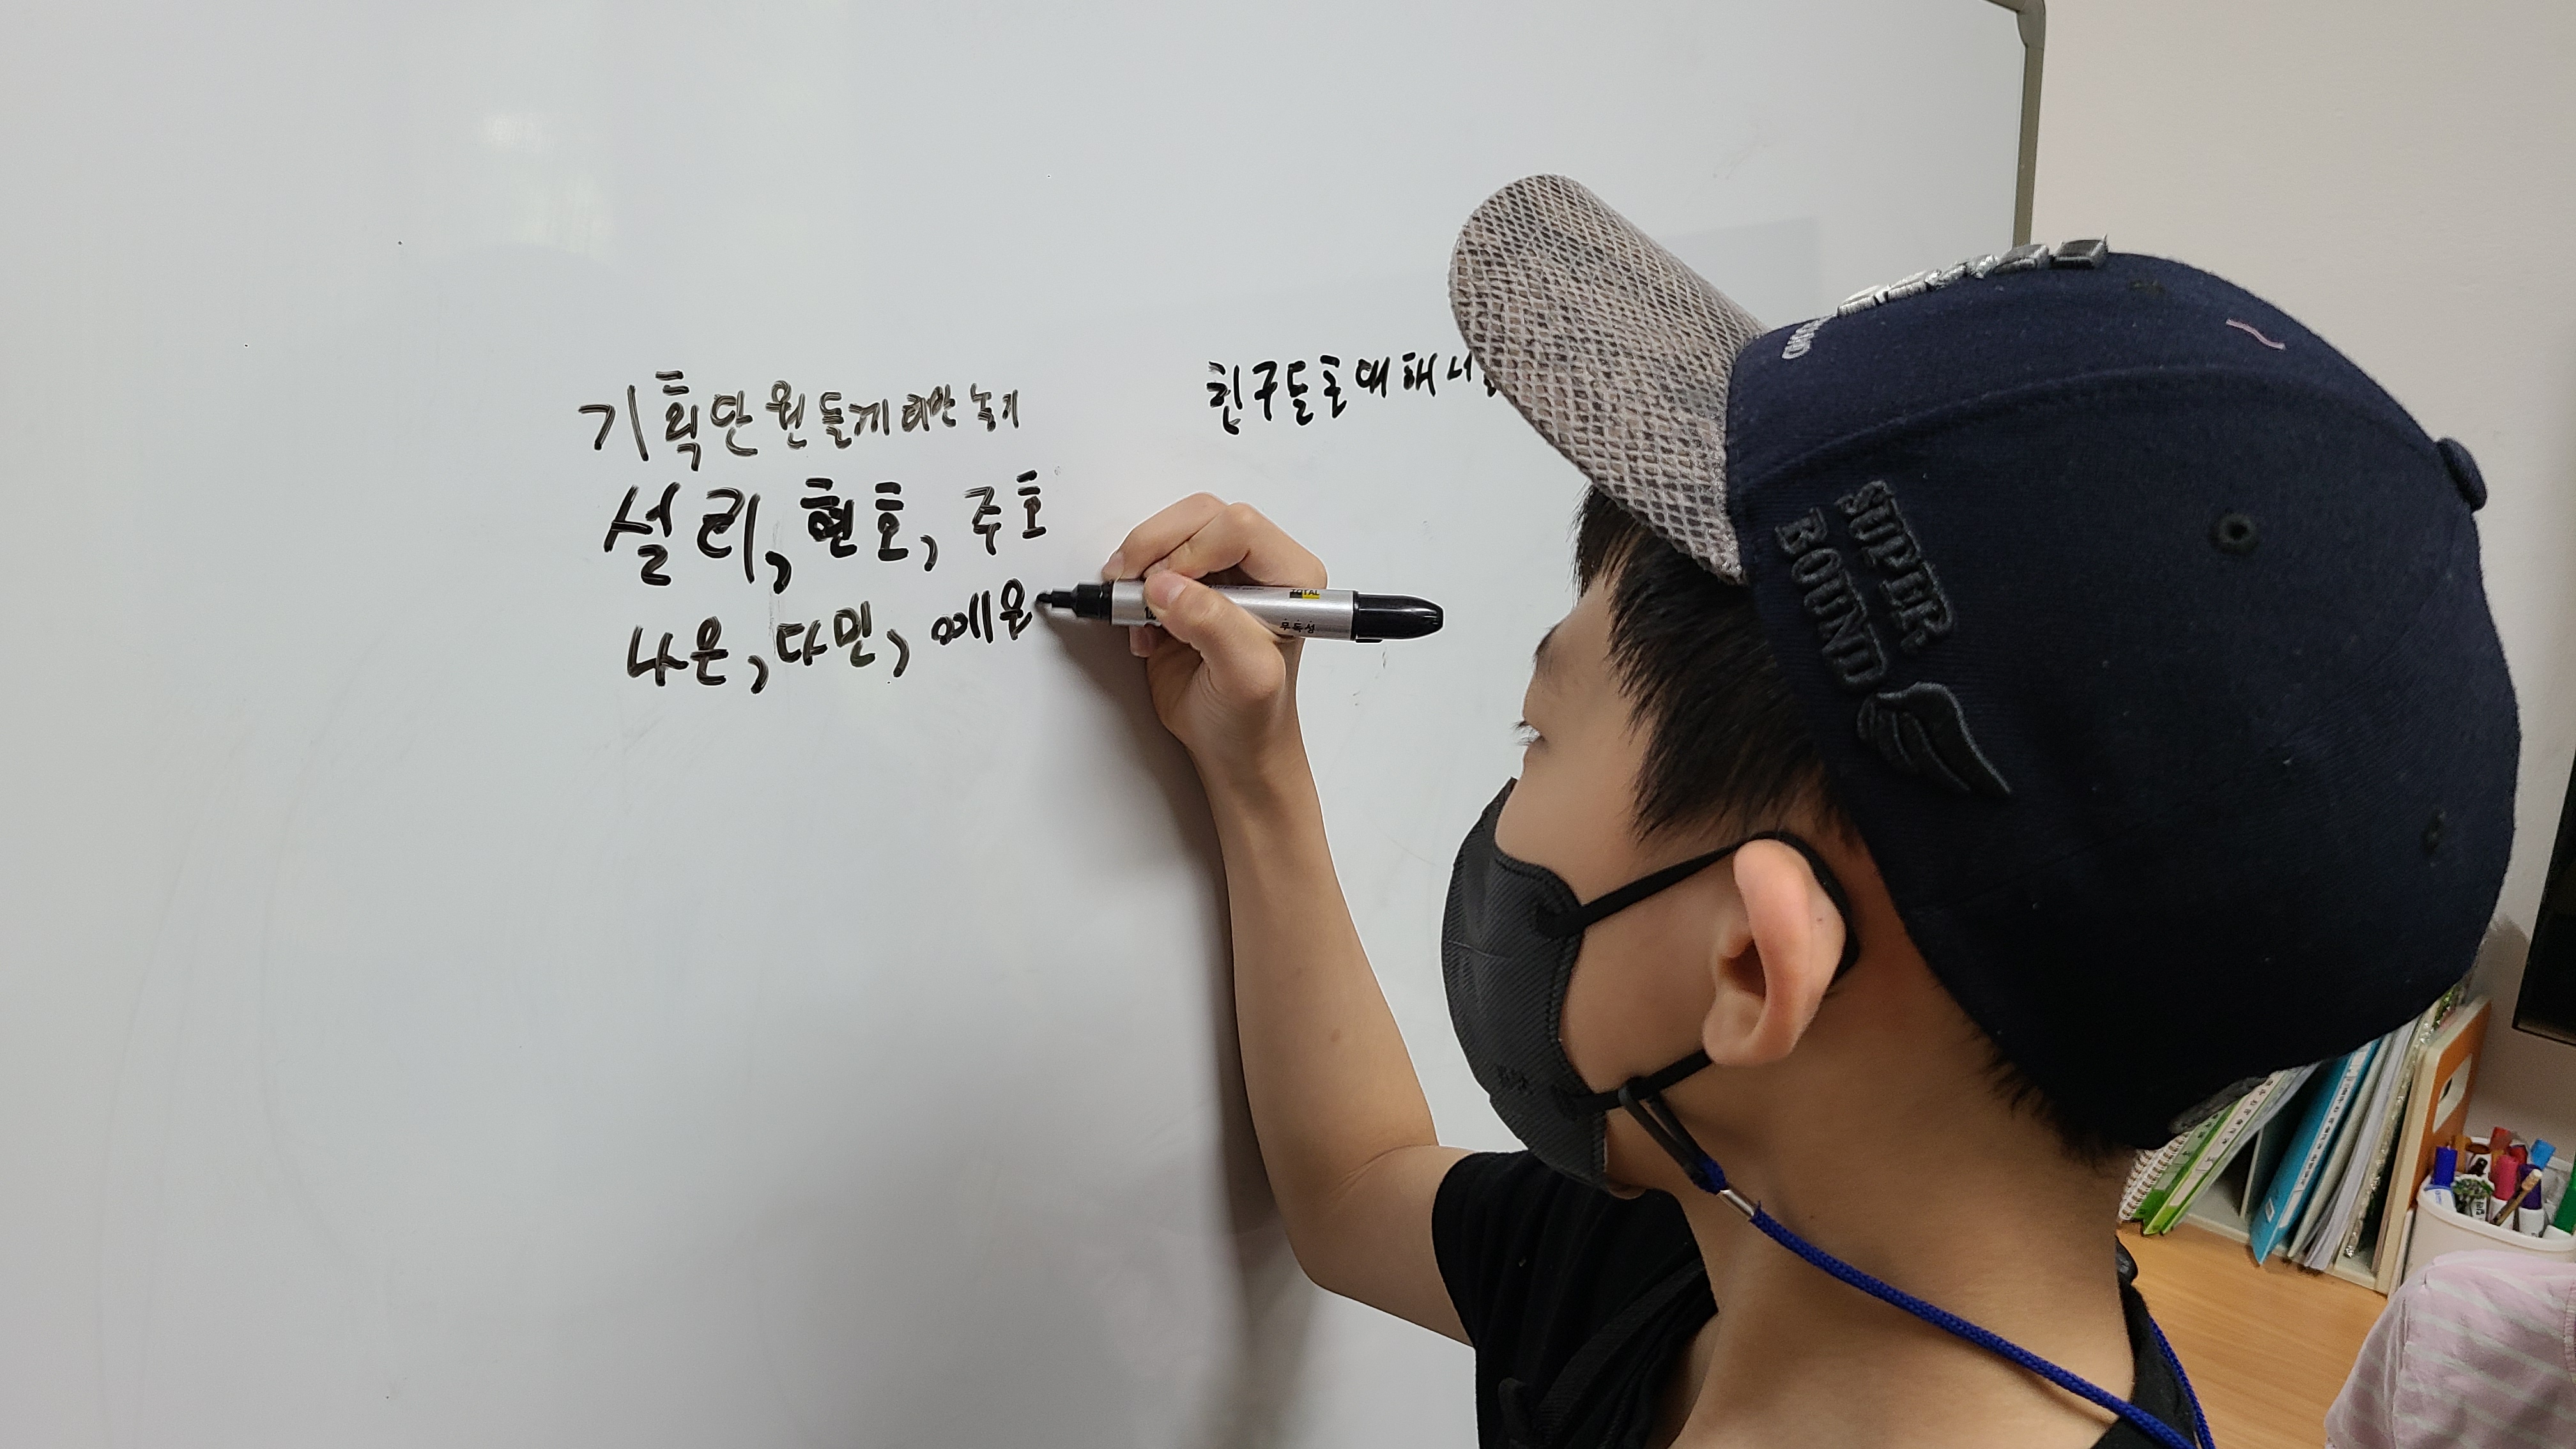 기획단원들께 제안 놓기
설리, 현호, 주호
나은, 다민, 예은
친구들 초대해서
SUPER
BOUND
TOTAL
무독성